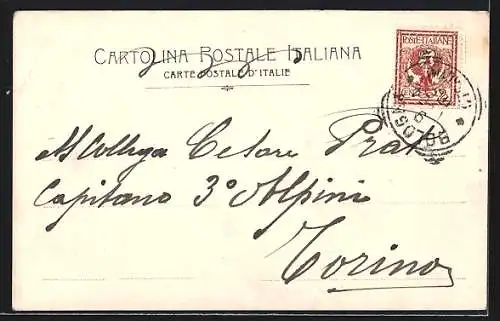 CARTOLINA POSTALE ITALIANA
CARTE POSTALE D'ITALIE
POSTE ITALIANE
Al Collega Cesare Prat
Capitano 3° Alpini
Torino